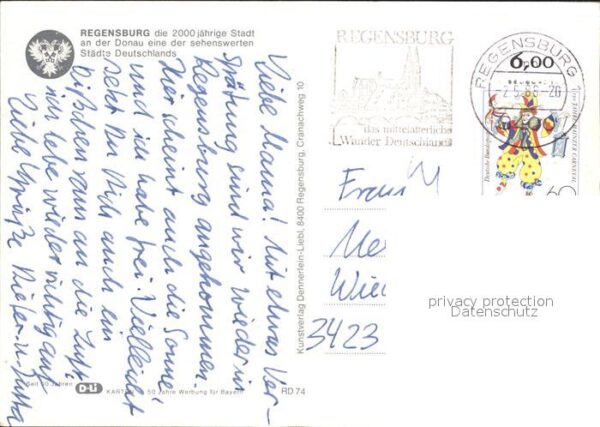 REGENSBURG die 2000 jährige Stadt
an der Donau eine der sehenswerten
Städte Deutschlands
Liebe Mama! Mit etwas Ver-
spätung sind wir wieder in
Regensburg angekommen.
Hier scheint auch die Sonne
und ich habe frei. Vielleicht
geht Du Dich auch ein
bißchen raus an die Luft.
ich lebe wieder richtig auf
Liebe Grüße Dieter u. Jutta
Seit 50 Jahren
D-Li
50 Jahre Werbung für Bayern
RD 74
Kunstverlag Dennerlein-Liebl, 8400 Regensburg, Cranachweg 10
REGENSBURG
das mittelalterliche
Wunder Deutschlands
REGENSBURG
6,00
Deutsche Bundespost
60
Frau
3423
privacy protection
Datenschutz